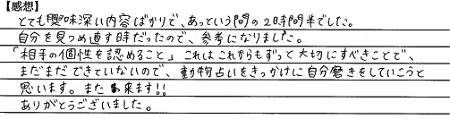 【感想】
とても興味深い内容ばかりで、あっという間の2時間半でした。
自分を見つめ直す時だったので、参考になりました。
「相手の個性を認めること」これはこれからもずっと大切にすべきことで、
まだまだできていないので、動物占いをきっかけに自分磨きをしていこうと
思います。また来ます!!
ありがとうございました。